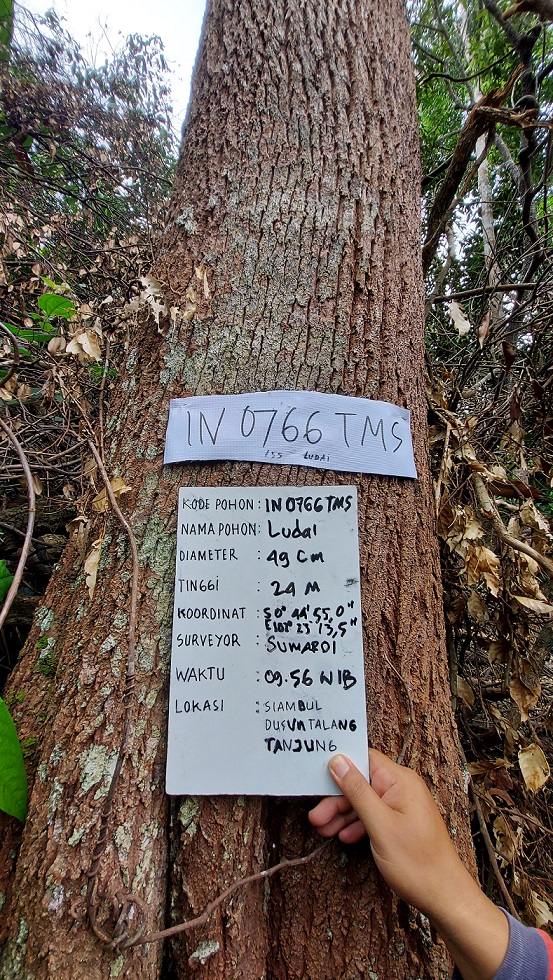 IN 0766 TMS
155 LUDAI
KODE POHON : IN 0766 TMS
NAMA POHON : Ludai
DIAMETER : 49 Cm
TINGGI : 24 M
KOORDINAT : S 0° 44' 55,0"
E 102° 23' 13,5"
SURVEYOR : SUWARDI
WAKTU : 09.56 WIB
LOKASI : SIAMBUL
DUSUN TALANG
TANJUNG